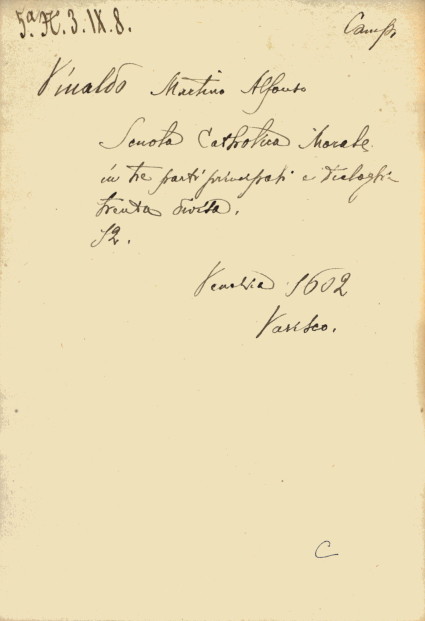 5.ª H. 3. IX. 8.
Camp.
Vivaldo Martino Alfonso
Scuola Catholica Morale
in tre parti principali e dialoghi
trenta divisa.
12.
Venetia 1602
Varisco.
C